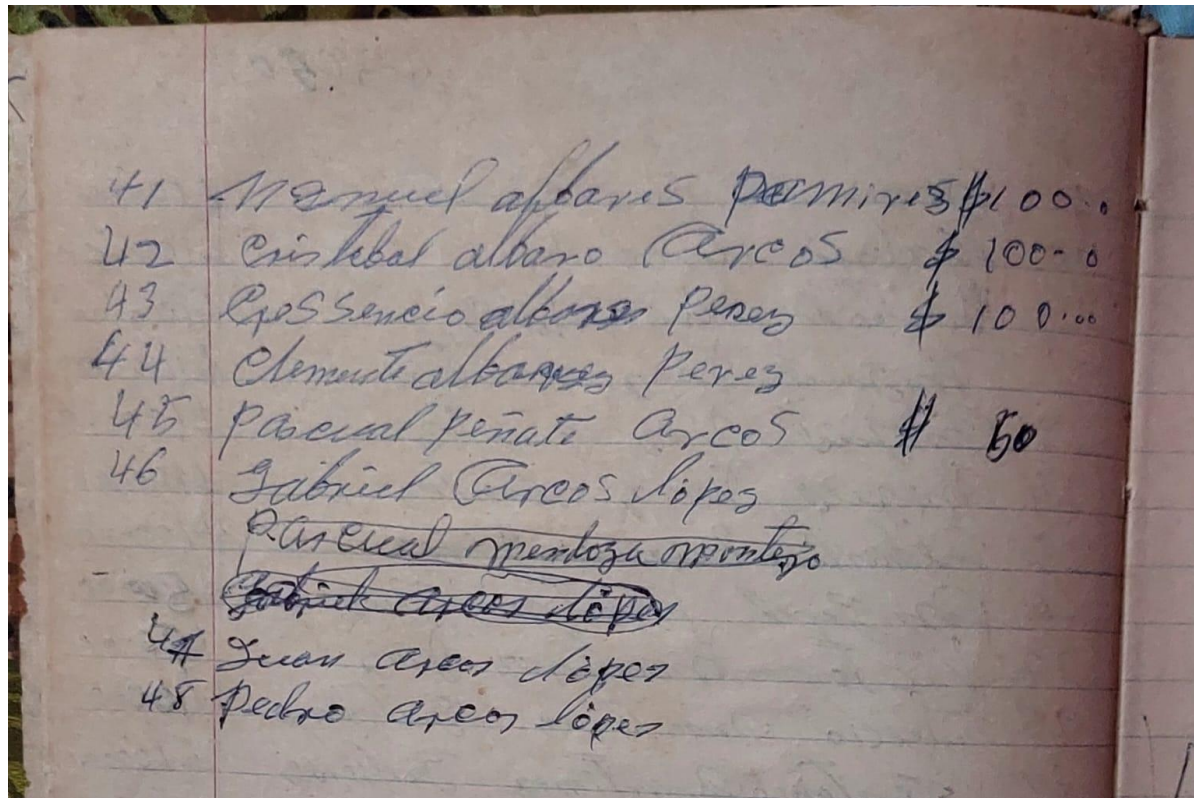 41 Manuel albares Ramires $100..
42 Cristobal albaro Arcos $ 100-0
43 Perez $ 100...
44 Clemente Perez
45 Pascual Peñate Arcos $ 50
46 Gabriel Arcos lópez
Pascual mendoza montejo
Gabriel arcos lópez
47 Juan arcos lópez
48 Pedro arcos lópez